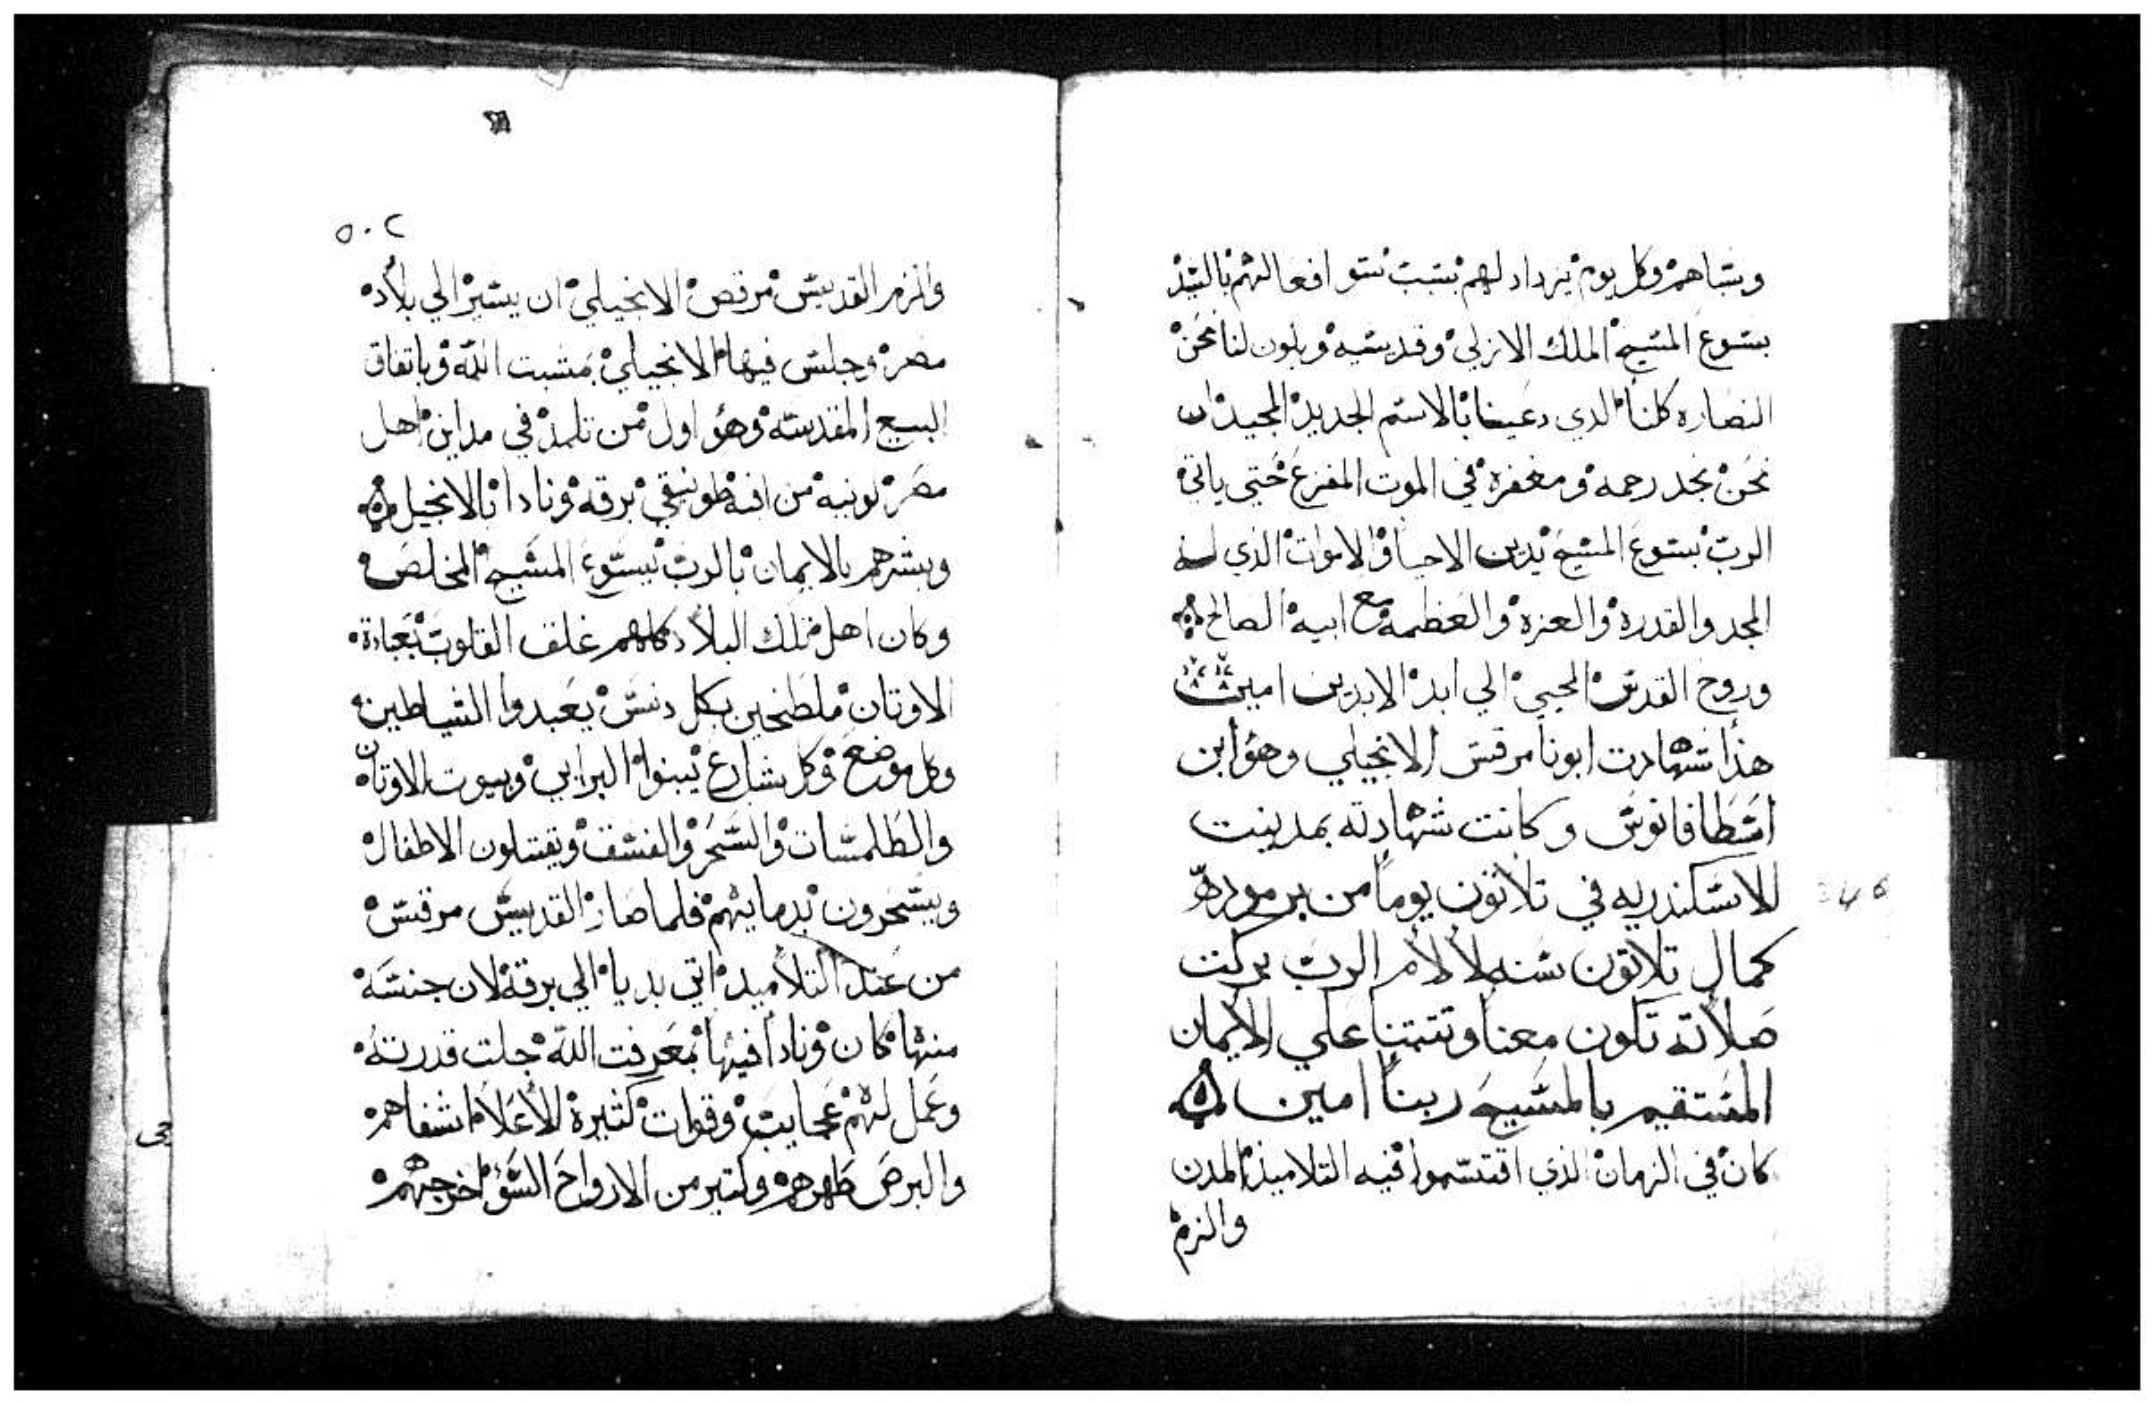 وبشاهم وكل يوم يزداد لهم بسبب سو افعالهم بالسيد
يسوع المسيح الملك الازلي وقديسيه ويكون لنا نحن
النصاره كلنا الدي دعينا بالاسم الجديد المجيد ان
نحن نجد رحمه ومغفرة في الموت المفزع حتى ياتي
الرب يسوع المسيح يدين الاحيا والاموات الذي له
المجد والقدرة والعزة والعظمه مع ابيه الصالح
وروح القدس المحيي الي ابد الابدين امين
هذا شهادت ابونا مرقس الانجيلي وهو ابن
اسطافانوس وكانت شهادته بمدينت
الاسكندريه في تلاتون يوما من برموده
كمال تلاتون سنه لالام الرب بركت
صلاته تكون معنا وتتبتنا علي الايمان
المستقيم بالمسيح ربنا امين
كان في الزمان الذي اقتسموا فيه التلاميذ المدن
والزم
٥٠٢
والزم القديس مرقص الانجيلي ان يسير الي بلاد
مصر وجلس فيها الانجيلي بمشيت الله وباتفاق
البيع المقدسه وهو اول من تلمذ في مداين اهل
مصر لونيه من افنه طونيقي برقه ونادا بالانجيل
وبشرهم بالايمان بالرب يسوع المسيح المخلص
وكان اهل تلك البلاد كلهم غلف القلوب بعبادة
الاوتان ملطخين بكل دنس يعبدوا الشياطين
وكل موضع وكل شارع يبنوا البرابي وبيوت الاوتان
والطلمسات والسحر والفسق ويقتلون الاطفال
ويسحرون بدمايهم فلما صار القديس مرقس
من عند التلاميد اتي بديا الي برقه لان جنسه
منها كان ونادا فيها بمعرفت الله جلت قدرته
وعمل لهم عجايب وقوات كثيرة للاعلا شفاهم
والبرص طهرهم وكتير من الارواح السو اخرجهم